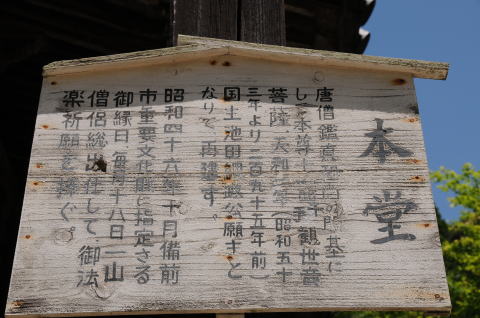 本堂
唐僧鑑真和尚の開基に
して本尊は千手観世音
菩薩、天和三年(昭和五十
三年より二百九十五年前)
国主池田綱政公願主と
なりて再建す。
昭和四十六年十月備前
市重要文化財に指定さる
御縁日、毎月十八日一山
僧侶総出仕して御法
楽祈願を捧ぐ。